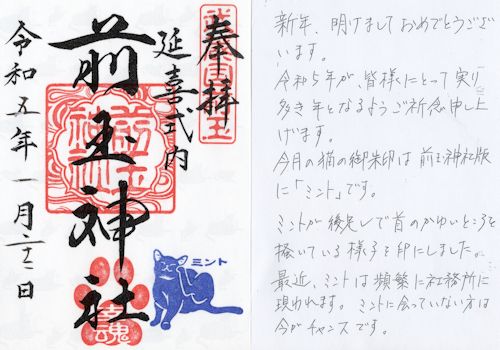 奉拝
延喜式内
前玉神社
令和五年一月二十二日
ミント
幸魂
新年、明けましておめでとうござ
います。
令和5年が、皆様にとって実り
多き年となるようご祈念申し上
げます。
今月の猫の御朱印は前玉神社版
に「ミント」です。
ミントが後足で首のかゆいところを
掻いている様子を印にしました。
最近、ミントは頻繁に社務所に
現われます。ミントに会っていない方は
今がチャンスです。